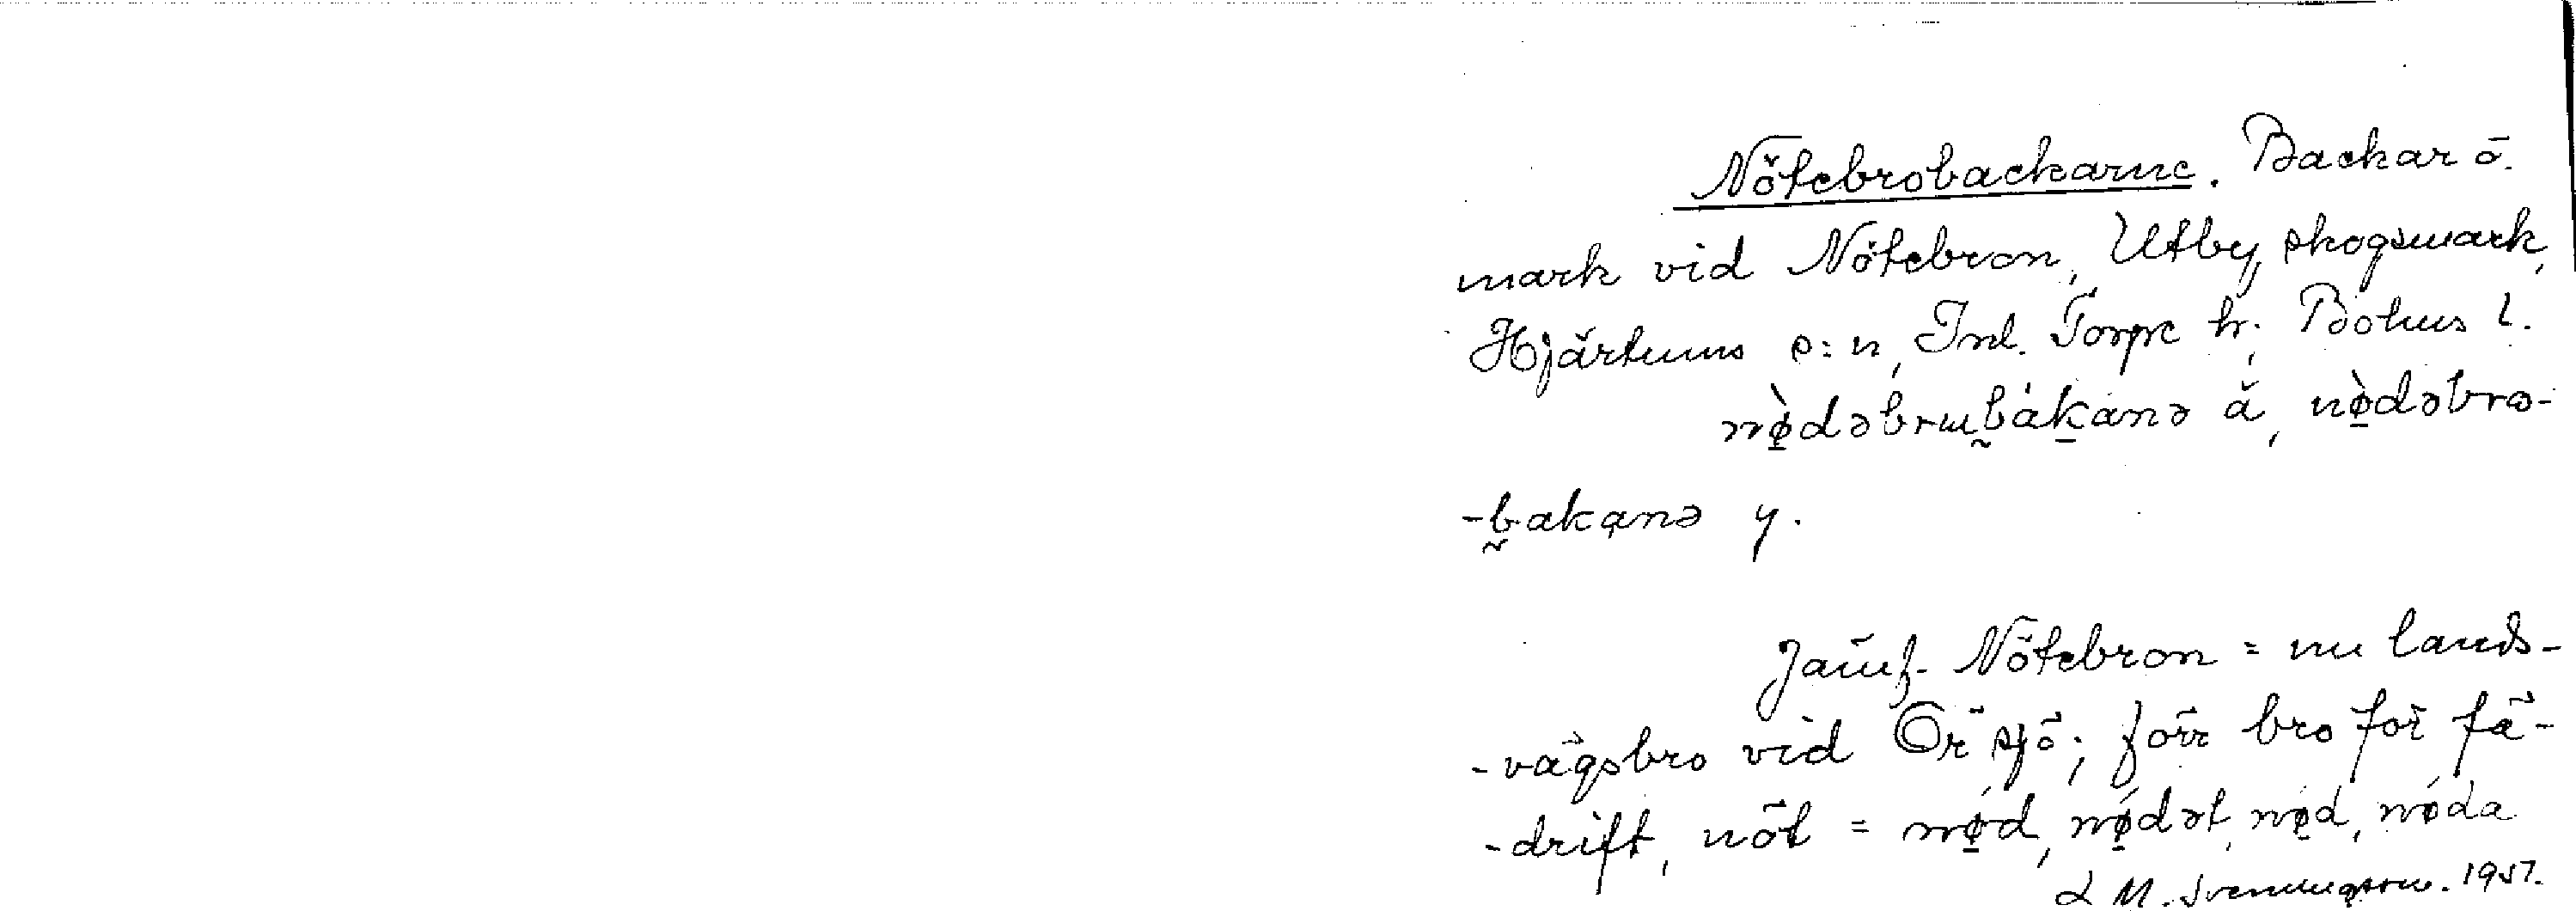 Nötebrobackarne. Backar å
mark vid Nötebron, Utby, skogsmark,
Hjärtums s:n, Inl. Torpe hr, Bohus l.
nø̀dəbrɯbakanə ä, nø̀dəbro-
-bakanə y.
Jämf. Nötebron = nu lands-
-vägsbro vid Öresjö; förr bro för fä-
-drift, nöt = nød, nødət, nød, nøda
L M. Svenungsson. 1957.